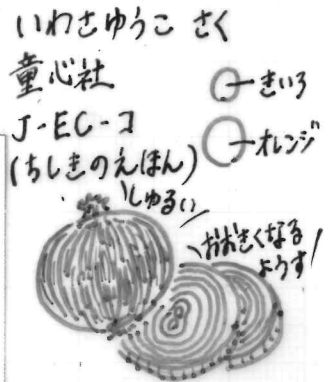 いわさゆうこ さく
童心社
J-EC-コ
(ちしきのえほん)
きいろ
オレンジ
しゅるい
おおきくなる
ようす